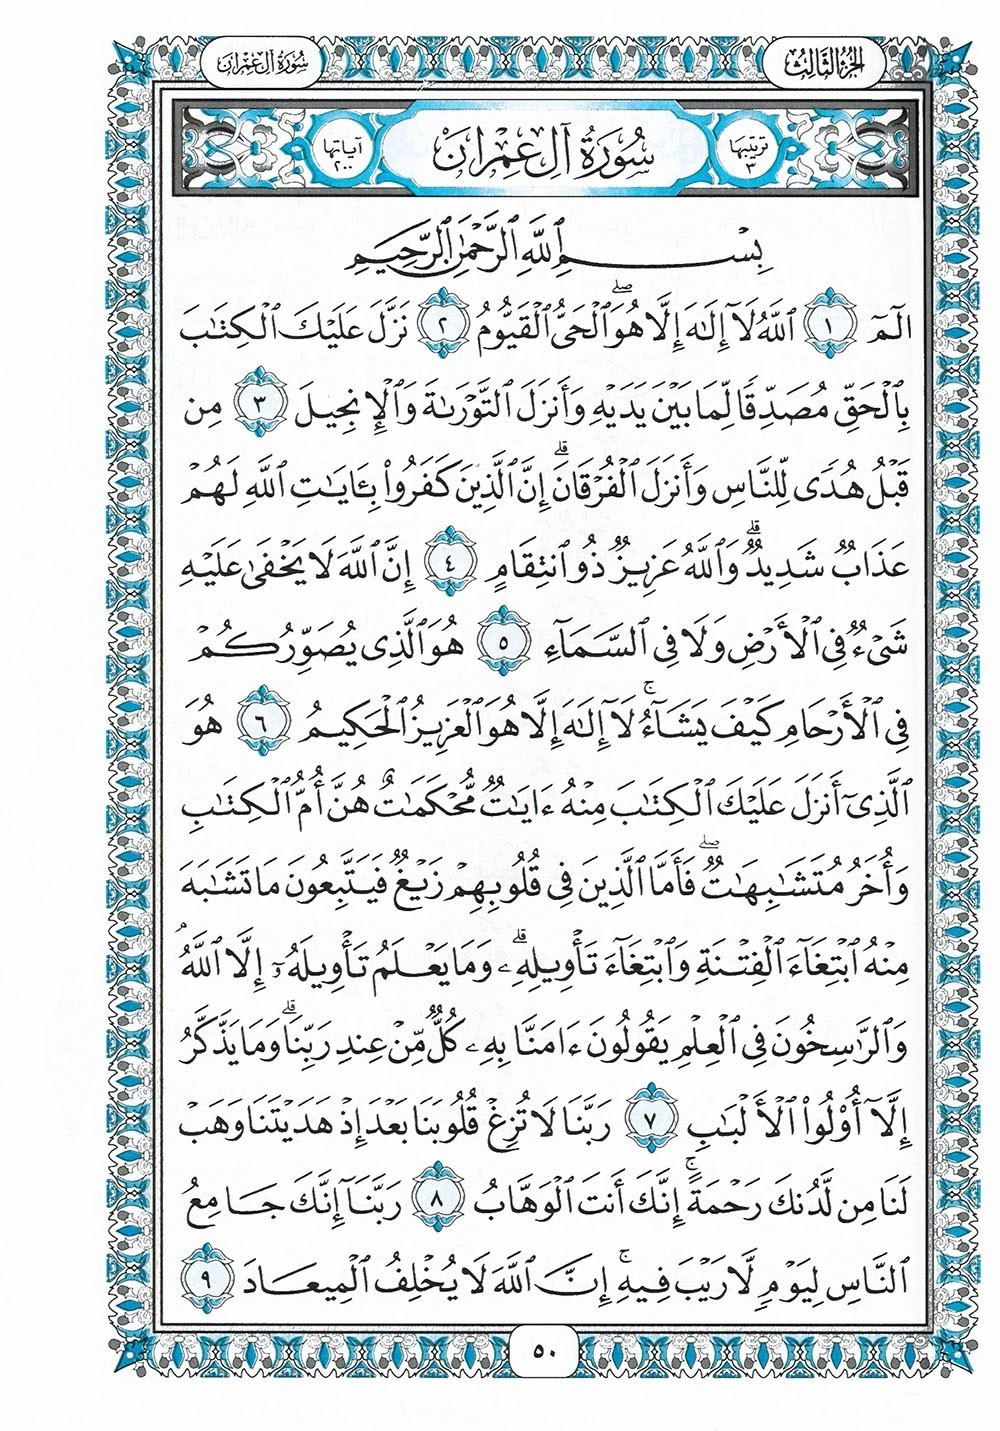 الجزء الثالث
سورة آل عمران
ترتيبها ٣
سُورَةُ آلِ عِمْرَانَ
آياتها ٢٠٠
بِسْمِ ٱللَّهِ ٱلرَّحْمَٰنِ ٱلرَّحِيمِ
الٓمٓ ١ ٱللَّهُ لَآ إِلَٰهَ إِلَّا هُوَ ٱلْحَىُّ ٱلْقَيُّومُ ٢ نَزَّلَ عَلَيْكَ ٱلْكِتَٰبَ
بِٱلْحَقِّ مُصَدِّقًا لِّمَا بَيْنَ يَدَيْهِ وَأَنزَلَ ٱلتَّوْرَىٰةَ وَٱلْإِنجِيلَ ٣ مِن
قَبْلُ هُدًى لِّلنَّاسِ وَأَنزَلَ ٱلْفُرْقَانَ ۗ إِنَّ ٱلَّذِينَ كَفَرُوا۟ بِـَٔايَٰتِ ٱللَّهِ لَهُمْ
عَذَابٌ شَدِيدٌ ۗ وَٱللَّهُ عَزِيزٌ ذُو ٱنتِقَامٍ ٤ إِنَّ ٱللَّهَ لَا يَخْفَىٰ عَلَيْهِ
شَىْءٌ فِى ٱلْأَرْضِ وَلَا فِى ٱلسَّمَآءِ ٥ هُوَ ٱلَّذِى يُصَوِّرُكُمْ
فِى ٱلْأَرْحَامِ كَيْفَ يَشَآءُ ۚ لَآ إِلَٰهَ إِلَّا هُوَ ٱلْعَزِيزُ ٱلْحَكِيمُ ٦ هُوَ
ٱلَّذِىٓ أَنزَلَ عَلَيْكَ ٱلْكِتَٰبَ مِنْهُ ءَايَٰتٌ مُّحْكَمَٰتٌ هُنَّ أُمُّ ٱلْكِتَٰبِ
وَأُخَرُ مُتَشَٰبِهَٰتٌ ۖ فَأَمَّا ٱلَّذِينَ فِى قُلُوبِهِمْ زَيْغٌ فَيَتَّبِعُونَ مَا تَشَٰبَهَ
مِنْهُ ٱبْتِغَآءَ ٱلْفِتْنَةِ وَٱبْتِغَآءَ تَأْوِيلِهِۦ ۗ وَمَا يَعْلَمُ تَأْوِيلَهُۥٓ إِلَّا ٱللَّهُ
وَٱلرَّٰسِخُونَ فِى ٱلْعِلْمِ يَقُولُونَ ءَامَنَّا بِهِۦ كُلٌّ مِّنْ عِندِ رَبِّنَا ۗ وَمَا يَذَّكَّرُ
إِلَّآ أُو۟لُوا۟ ٱلْأَلْبَٰبِ ٧ رَبَّنَا لَا تُزِغْ قُلُوبَنَا بَعْدَ إِذْ هَدَيْتَنَا وَهَبْ
لَنَا مِن لَّدُنكَ رَحْمَةً ۚ إِنَّكَ أَنتَ ٱلْوَهَّابُ ٨ رَبَّنَآ إِنَّكَ جَامِعُ
ٱلنَّاسِ لِيَوْمٍ لَّا رَيْبَ فِيهِ ۚ إِنَّ ٱللَّهَ لَا يُخْلِفُ ٱلْمِيعَادَ ٩
٥٠